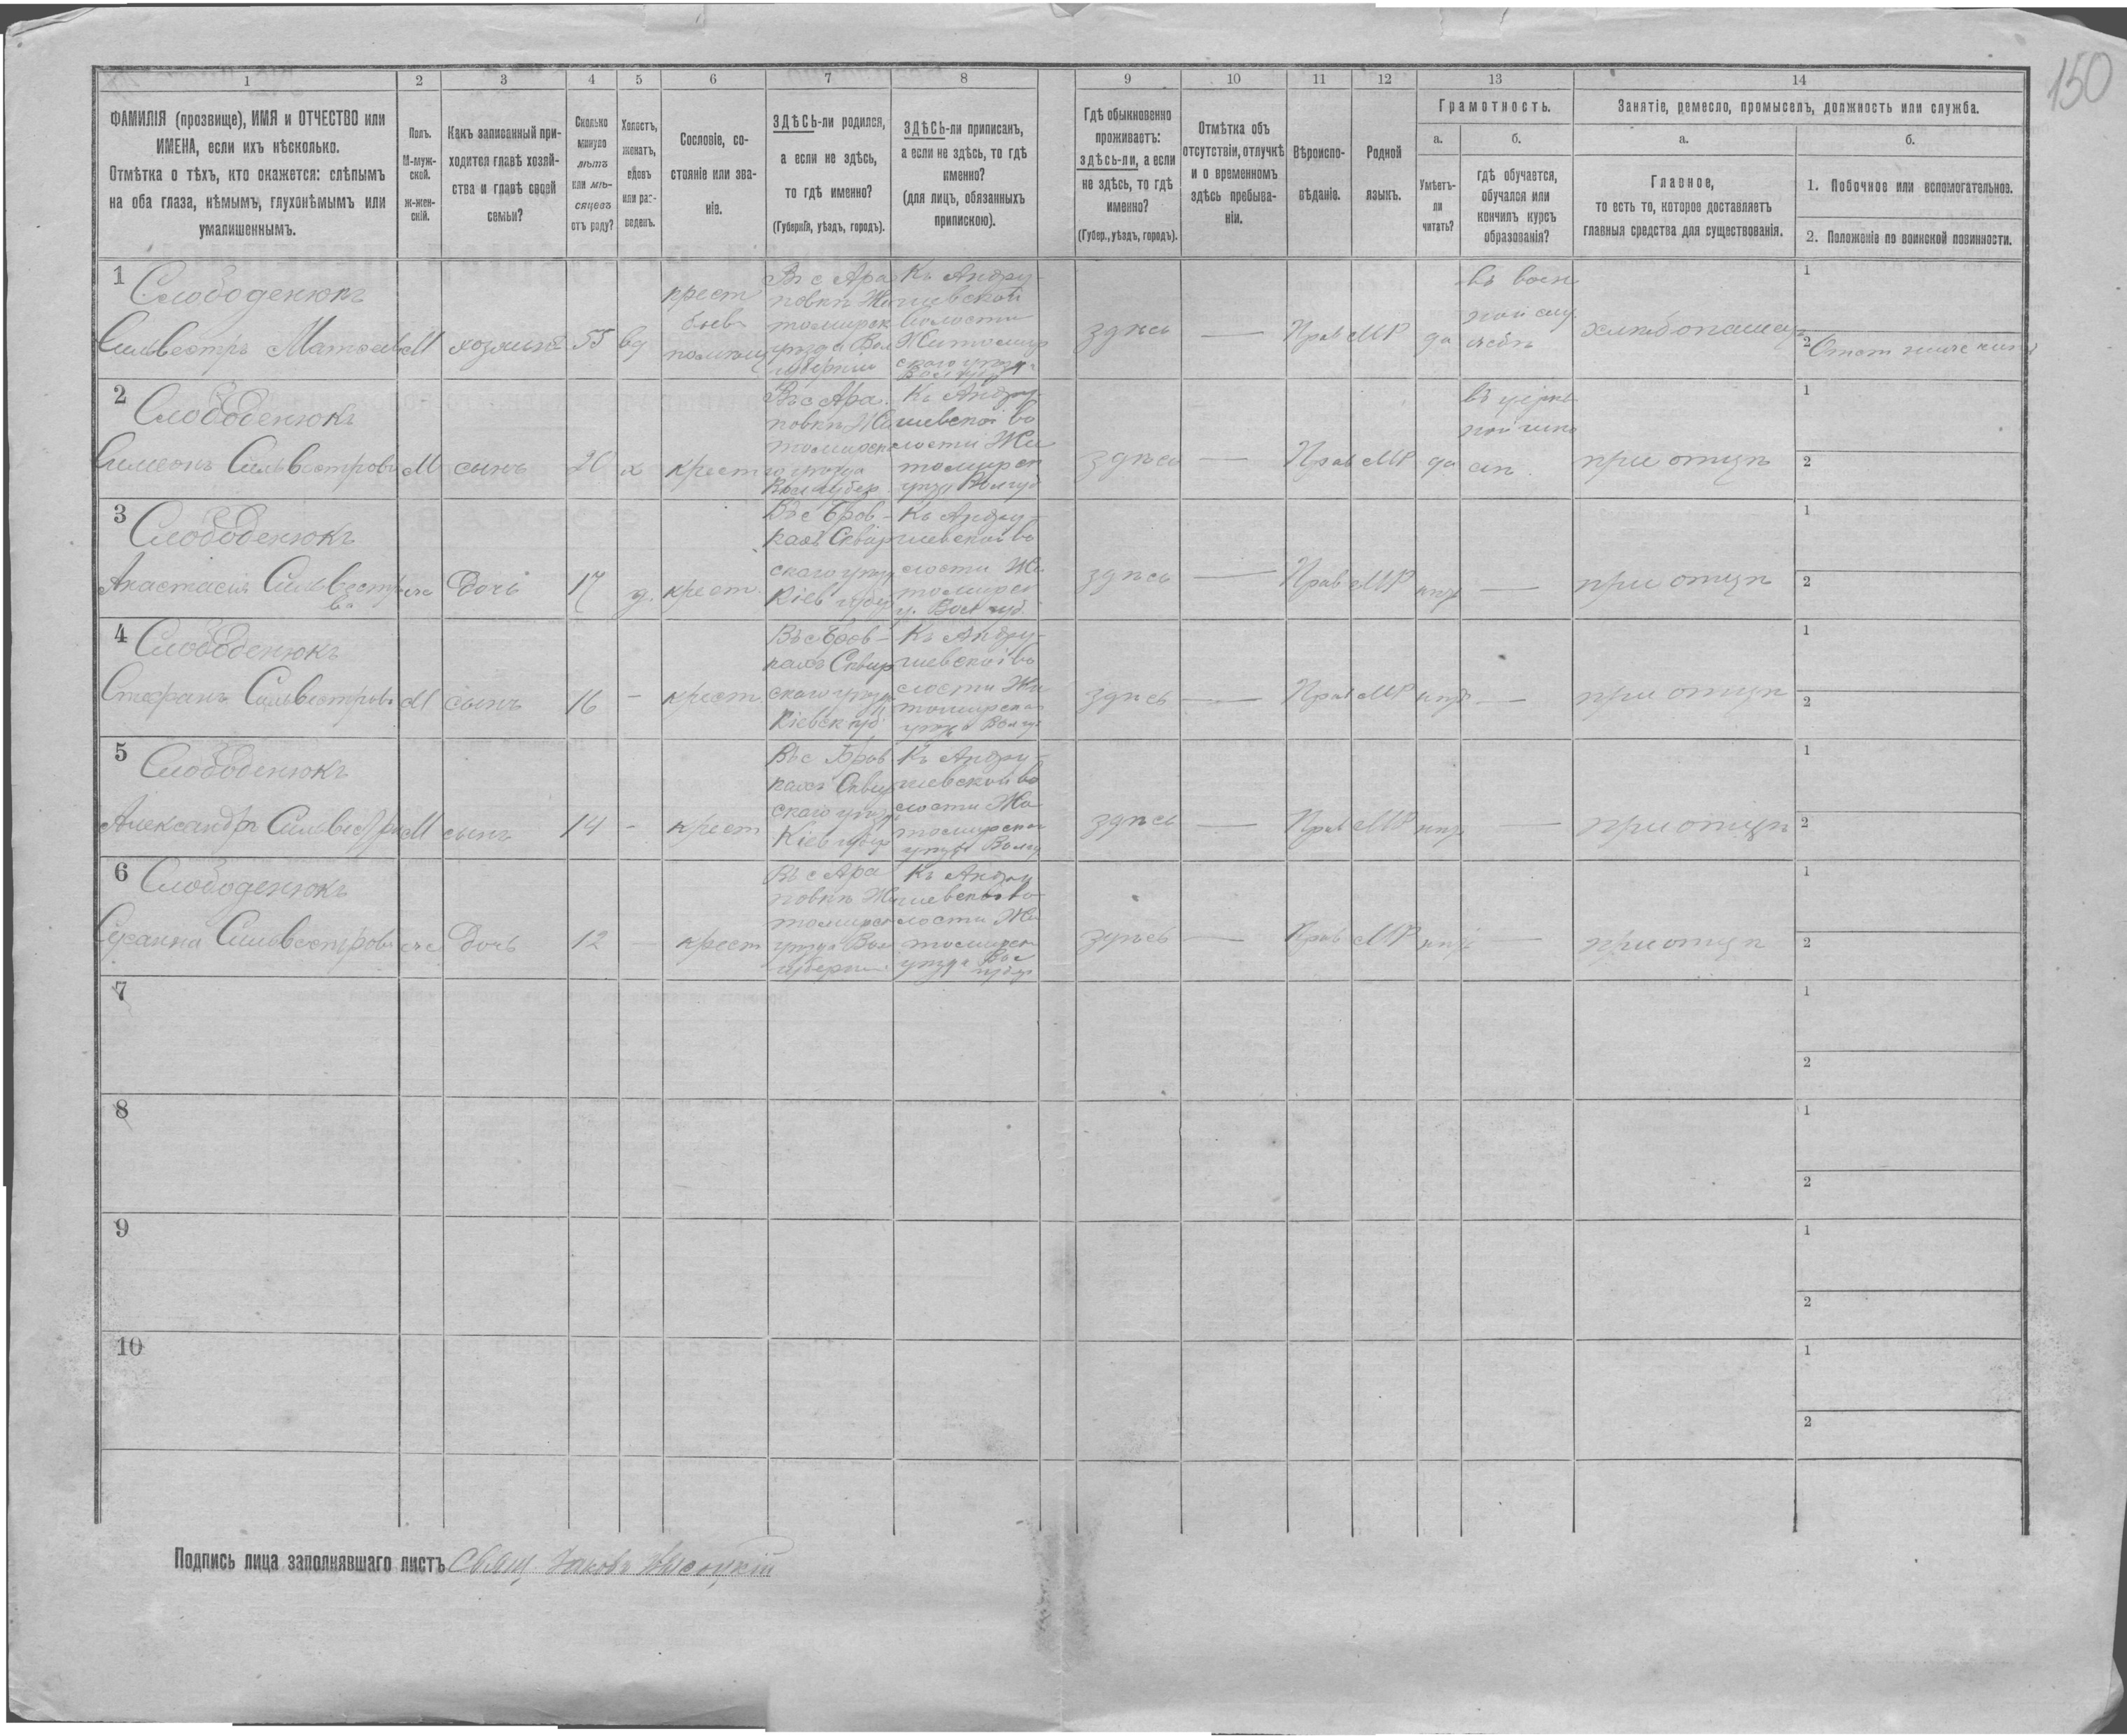 150
1 2 3 4 5 6 7 8 9 10 11 12 13 14
ФАМИЛІЯ (прозвище), ИМЯ и ОТЧЕСТВО или
ИМЕНА, если ихъ нѣсколько.
Отмѣтка о тѣхъ, кто окажется: слѣпымъ
на оба глаза, нѣмымъ, глухонѣмымъ или
умалишеннымъ.
Полъ.
М-муж-
ской.
Ж-жен-
скій.
Какъ записанный при-
ходится главѣ хозяй-
ства и главѣ своей
семьи?
Сколько
минуло
лѣтъ
или мѣ-
сяцевъ
отъ роду?
Холостъ,
женатъ,
вдовъ
или раз-
веденъ.
Сословіе, со-
стояніе или зва-
ніе.
ЗДѢСЬ-ли родился,
а если не здѣсь,
то гдѣ именно?
(Губернія, уѣздъ, городъ).
ЗДѢСЬ-ли приписанъ,
а если не здѣсь, то гдѣ
именно?
(для лицъ, обязанныхъ
припискою).
Гдѣ обыкновенно
проживаетъ:
здѣсь-ли, а если
не здѣсь, то гдѣ
именно?
(Губер., уѣздъ, городъ).
Отмѣтка объ
отсутствіи, отлучкѣ
и о временномъ
здѣсь пребыва-
ніи.
Вѣроиспо-
вѣданіе.
Родной
языкъ.
Грамотность.
а.
Умѣетъ-
ли
читать?
б.
гдѣ обучается,
обучался или
кончилъ курсъ
образованія?
Занятіе, ремесло, промыселъ, должность или служба.
а.
Главное,
то есть то, которое доставляетъ
главныя средства для существованія.
б.
1. Побочное или вспомогательное.
2. Положеніе по воинской повинности.
1
Слободенюкъ
Сильвестръ Матѳеев М хозяинъ 55 вд
крест
бывъ
Въ с Ара
повкѣ Жи
томирск
уѣзда Вол
губерніи
Къ Андру-
шевской
Волости
Житомир
скаго уѣзда
Вол губ
здѣсь — Прав МР да
въ воен
ной слу
жбѣ
хлѣбопашецъ
1
2
2
Слободенюкъ
Симеонъ Сильвестрови М сынъ 20 х крест
Въ с Ара
повкѣ Жи
томирска
го уѣзда
Вол губер
Къ Андру
шевской во
лости Жи
томирск
уѣзд Вол губ
здѣсь — Прав МР да
въ церков
ной шко
лѣ
при отцѣ
1
2
3
Слободенюкъ
Анастасія Сильвестро
ва
Дочь 17 д. крест.
Въ с Бров-
кахъ Сквир
скаго уѣзд
Кіев губер
Къ Андру-
шевской во
лости Жи
томирск
у. Вол губ.
здѣсь — Прав МР — при отцѣ
1
2
4
Слободенюкъ
Стефанъ Сильвестрови М сынъ 16 — крест
Въ с Бров-
кахъ Сквир
скаго уѣзд
Кіевск губ
Къ Андру-
шевской во
лости Жи
томирскаго
уѣзда Вол гу
здѣсь — Прав МР — при отцѣ
1
2
5
Слободенюкъ
Александръ Сильвестро М сынъ 14 — крест
Въ с Бров
кахъ Сквир
скаго уѣзд
Кіев губер
Къ Андру-
шевской во
лости Жи
томирскаго
уѣзда Вол гу
здѣсь — Прав МР — при отцѣ
1
2
6
Слободенюкъ
Сусанна Сильвестрова Дочь 12 — крест
Въ с Ара
повкѣ Жи
томирск
уѣзда Вол
губерніи
Къ Андру
шевской во
лости Жи
томирск
уѣзда Вол
губер
здѣсь — Прав МР — при отцѣ
1
2
7
1
2
8
1
2
9
1
2
10
1
2
Подпись лица заполнявшаго листъ Свящ. Іаковъ Высоцкій